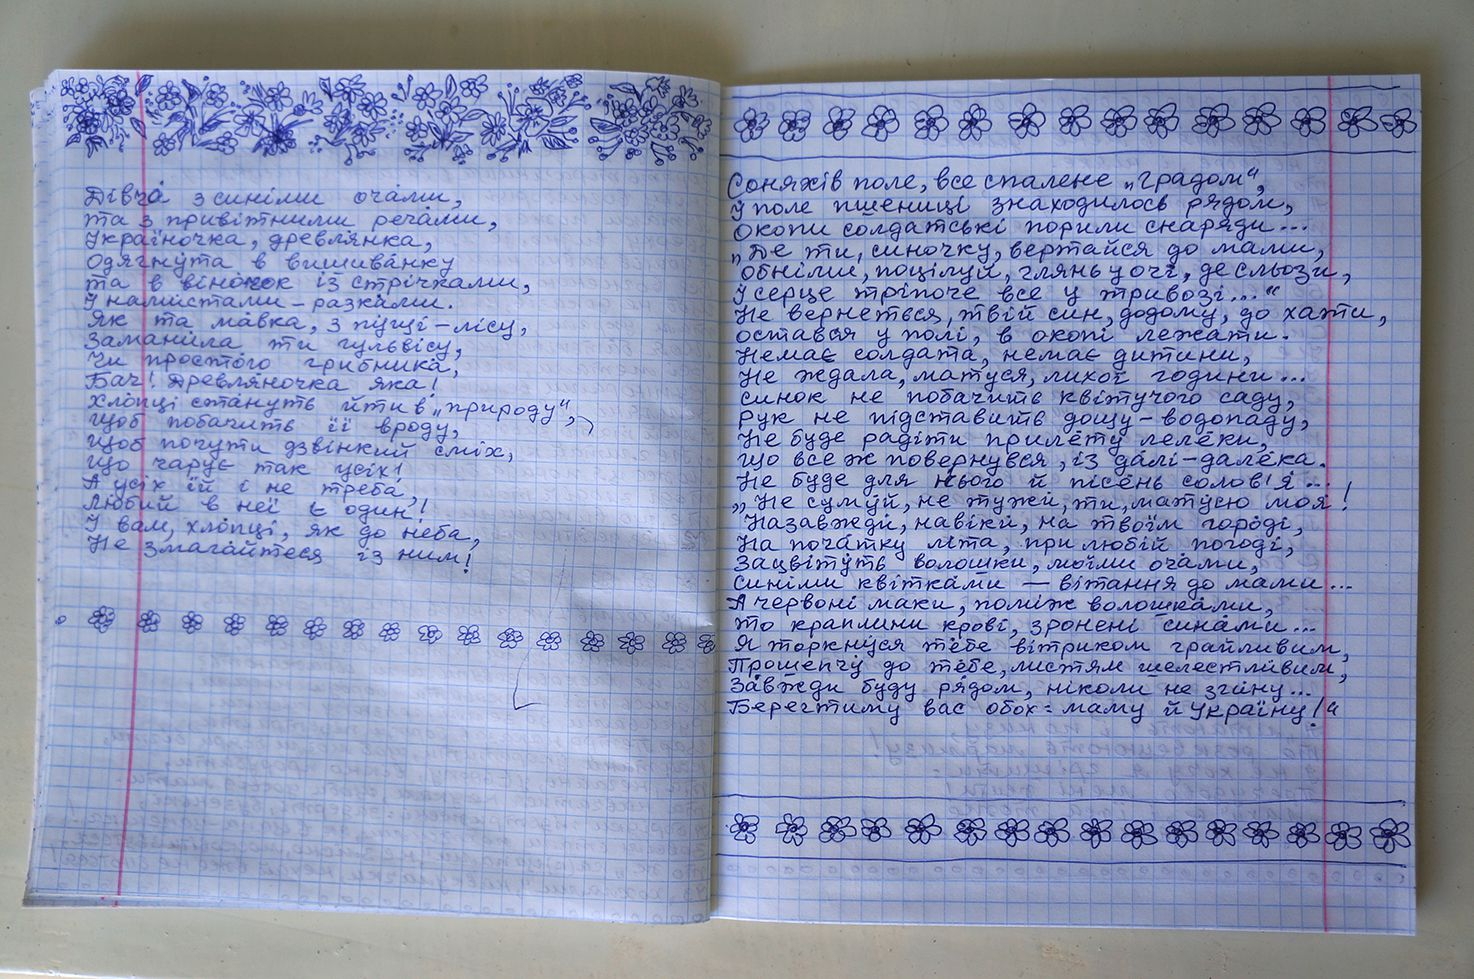 Дівча́ з синіми оча́ми,
та з привітними реча́ми,
Україночка, древля́нка,
Одягну́та в вишива́нку
та в віночок із стрічками,
У намистами - разка́ми.
Як та ма́вка, з пу́щі - лісу,
Заманила ти гульвісу,
Чи просто́го грибника́,
Бач! Древляночка яка!
Хло́пці ста́нуть йти в „природу",
Щоб побачить її вроду,
Щоб почути дзвінкий сміх,
Що чарує так усіх!
А усіх їй і не треба,
Любий в неї є один!
У вам, хло́пці, як до не́ба,
Не змага́йтеся із ним!
Соняхів поле, все спалене „градом",
У поле пшениці знаходилось рядом,
Окопи солдатські порили снаряди...
„Де ти, синочку, вертайся до мами,
обніми, поцілуй, глянь у очі, де сльози,
У серце тріпоче все у тривозі..."
Не вернеться, твій син, додому, до хати,
остався у полі, в окопі лежати.
Немає солдата, немає дитини,
Не ждала, матуся, лихої години...
Синок не побачить квітучого саду,
Рук не підставить дощу - водопаду,
Не буде радіти приле́ту леле́ки,
Що все ж повернувся, із да́лі - дале́ка.
Не буде для нього й пісень солов'я...
„Не сумуй, не тужи, ти, матусю моя!
Назавжди, навіки, на твоїм горо́ді,
На поча́тку літа, при любій погоді,
Зацвіту́ть волошки, моїми оча́ми,
Синіми квітка́ми — вітання до мами...
А червоні маки, поміж волошка́ми,
то краплини крові, зронені сина́ми...
Я торкну́ся те́бе вітриком грайливим,
Прошепчу́ до те́бе, листям шелестли́вим,
За́вжди буду ря́дом, ніколи не зги́ну...
Берегтиму вас обох: маму й Україну!"